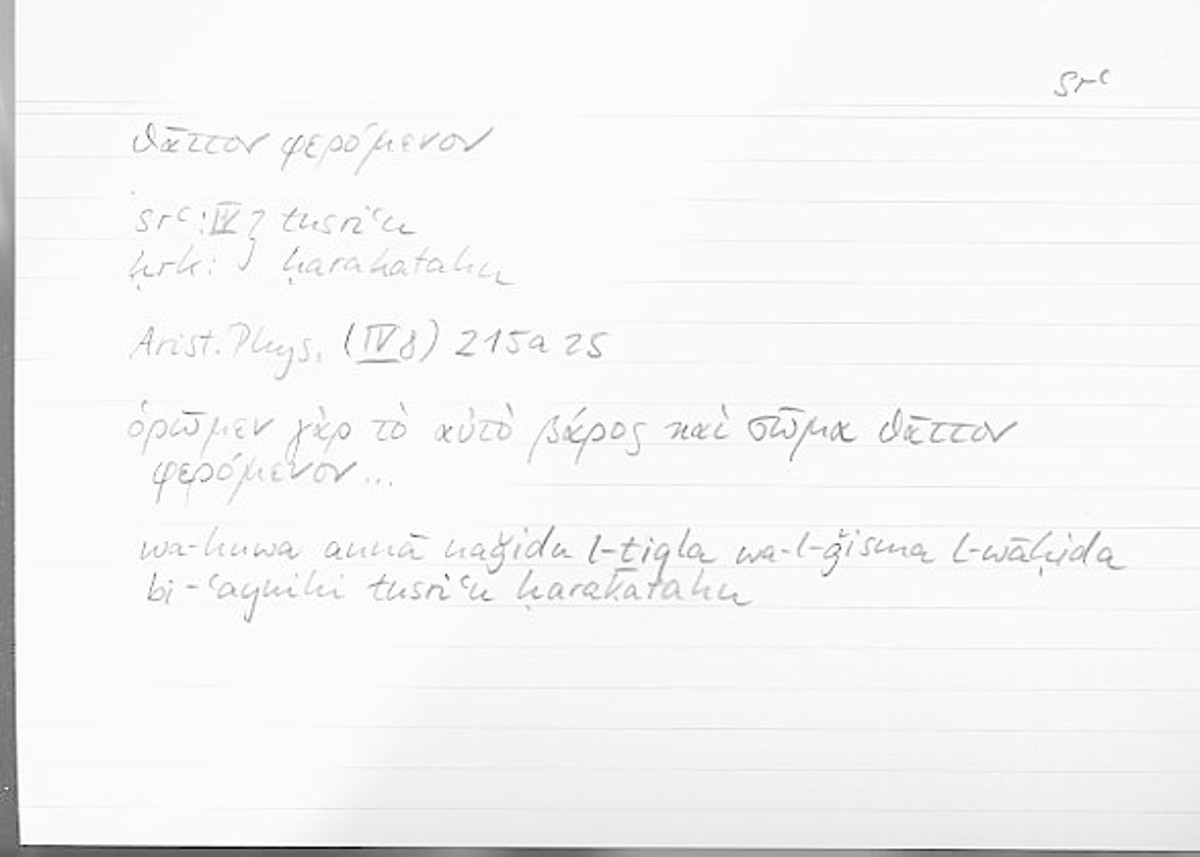 srʿ
θᾶττον φερόμενον
srʿ: IV } tusriʿu
ḥrk: } ḥarakatahu
Arist. Phys. (IV 8) 215a25
ὁρῶμεν γὰρ τὸ αὐτὸ βάρος καὶ σῶμα θᾶττον
φερόμενον...
wa-huwa annā naǧidu l-ṯiqla wa-l-ǧisma l-wāḥida
bi-ʿaynihi tusriʿu ḥarakatahu